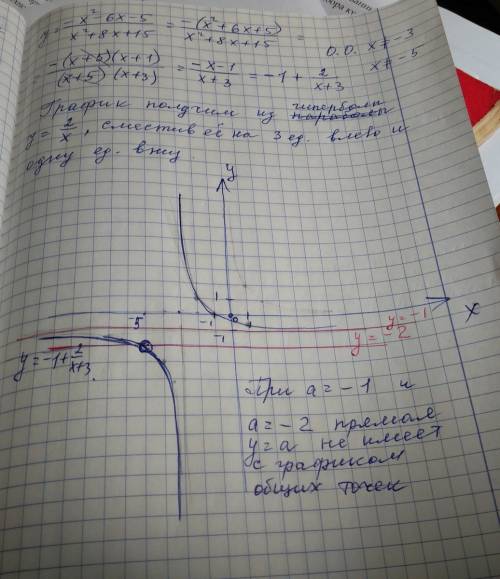 y = (-x² - 6x - 5)/(x² + 8x + 15) = -(x² + 6x + 5)/(x² + 8x + 15) =
О.О. x ≠ -3
x ≠ -5
-(x+5)(x+1)/(x+5)(x+3) = (-x-1)/(x+3) = -1 + 2/(x+3)
График получим из гиперболы
y = 2/x, сместив её на 3 ед. влево и
одну ед. вниз.
y
1
-5
-1
0
1
x
-1
y = -1
y = -2
y = -1 + 2/(x+3).
При a = -1 и
a = -2 прямая
y = a не имеет
с графиком
общих точек